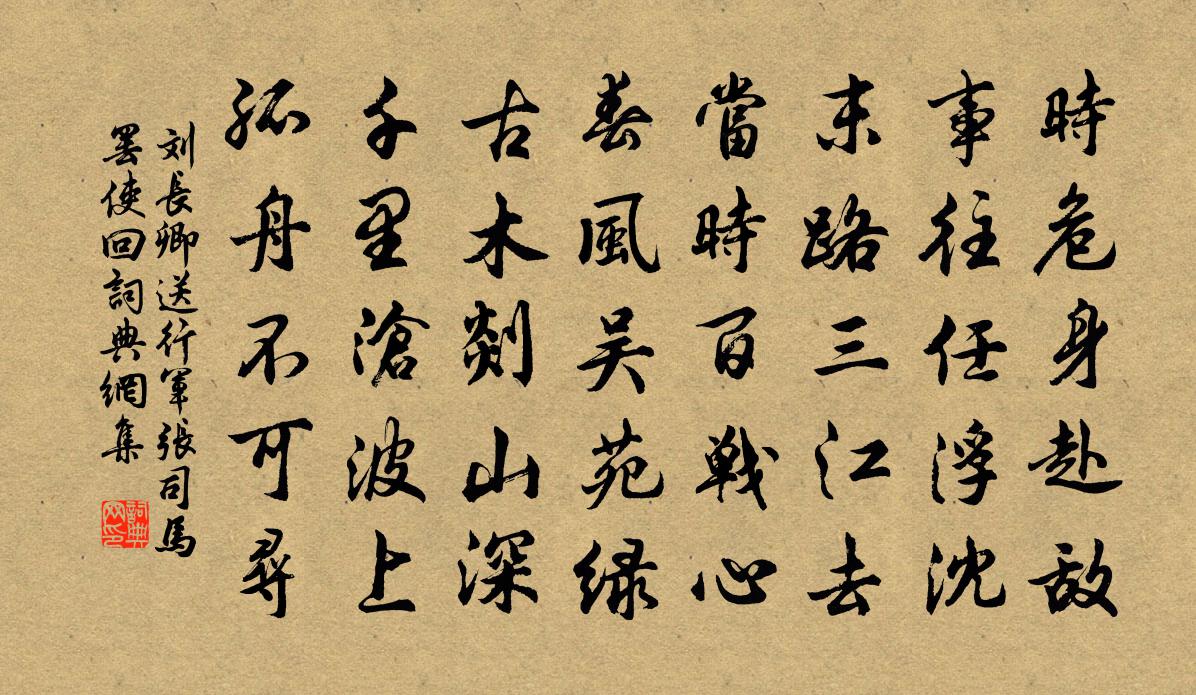 時危身赴敌
事往任浮沈
末路三江去
當時百戦心
春風吴苑绿
古木剡山深
千里滄波上
孤舟不可尋
刘長卿送行軍張司馬
罢使回詞典網集
詞典
网印